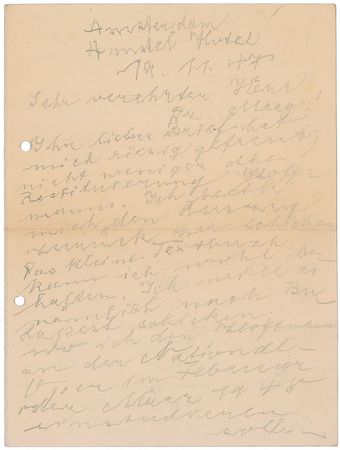 Amsterdam
Amstel Hotel
19. 11. 47
Sehr verehrter Herr
Dr.
Ihr lieber Brief hat
mich riesig gefreut,
nicht weniger die
Restituierung Hoff-
manns. Ich beeile
mich den Auszug
zurück zu schicken
Das kleine Textbuch
kann ich wohl be
halten. Ich will es
nämlich nach Bu
dapest schicken,
wo ich den Hoffmann
an der National
Oper im Februar
oder März 1948
einstudieren
soll.